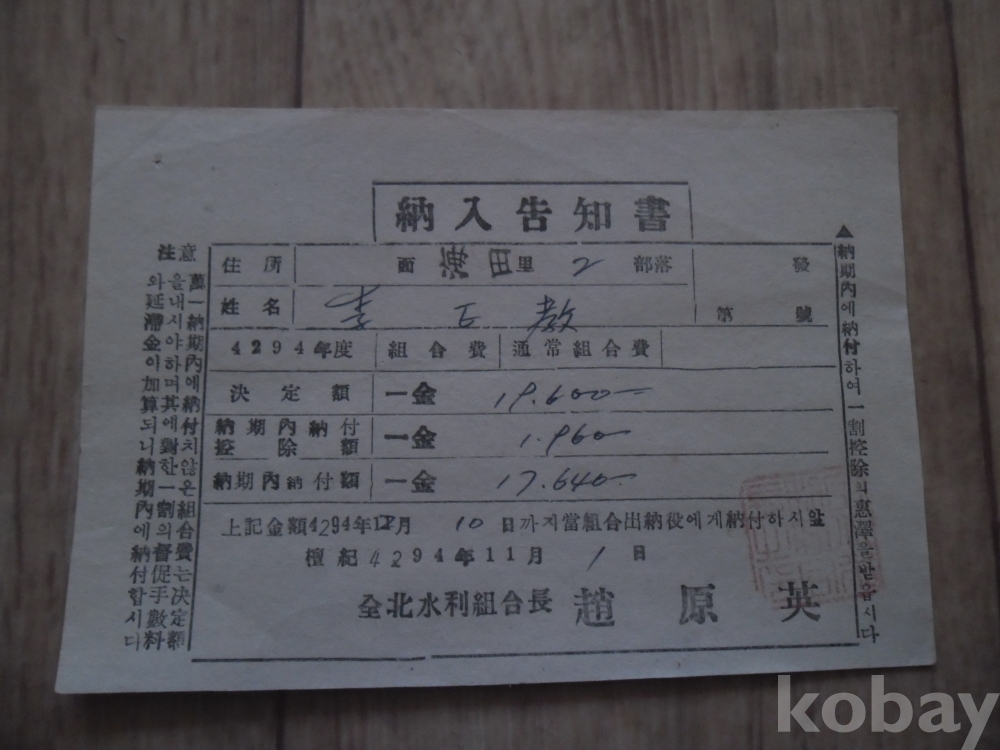 納入告知書
住所 面 海田里 2 部落 發
姓名 李 正 教 第 號
4294年度 組合費 通常組合費
決定額 一金 19.600-
納期內納付控除額 一金 1.960-
納期內納付額 一金 17.640-
上記金額4294年12月 10日까지當組合出納役에게納付하시앞
檀紀4294年11月 1日
全北水利組合長 趙原英
▲納期內에納付하여一割控除의惠澤을받읍시다
注意 萬一納期內에納付치않은組合費는决定額
을내시야하며其에對한一割의督促手數料
와延滯金이加算되니納期內에納付합시다
kobay